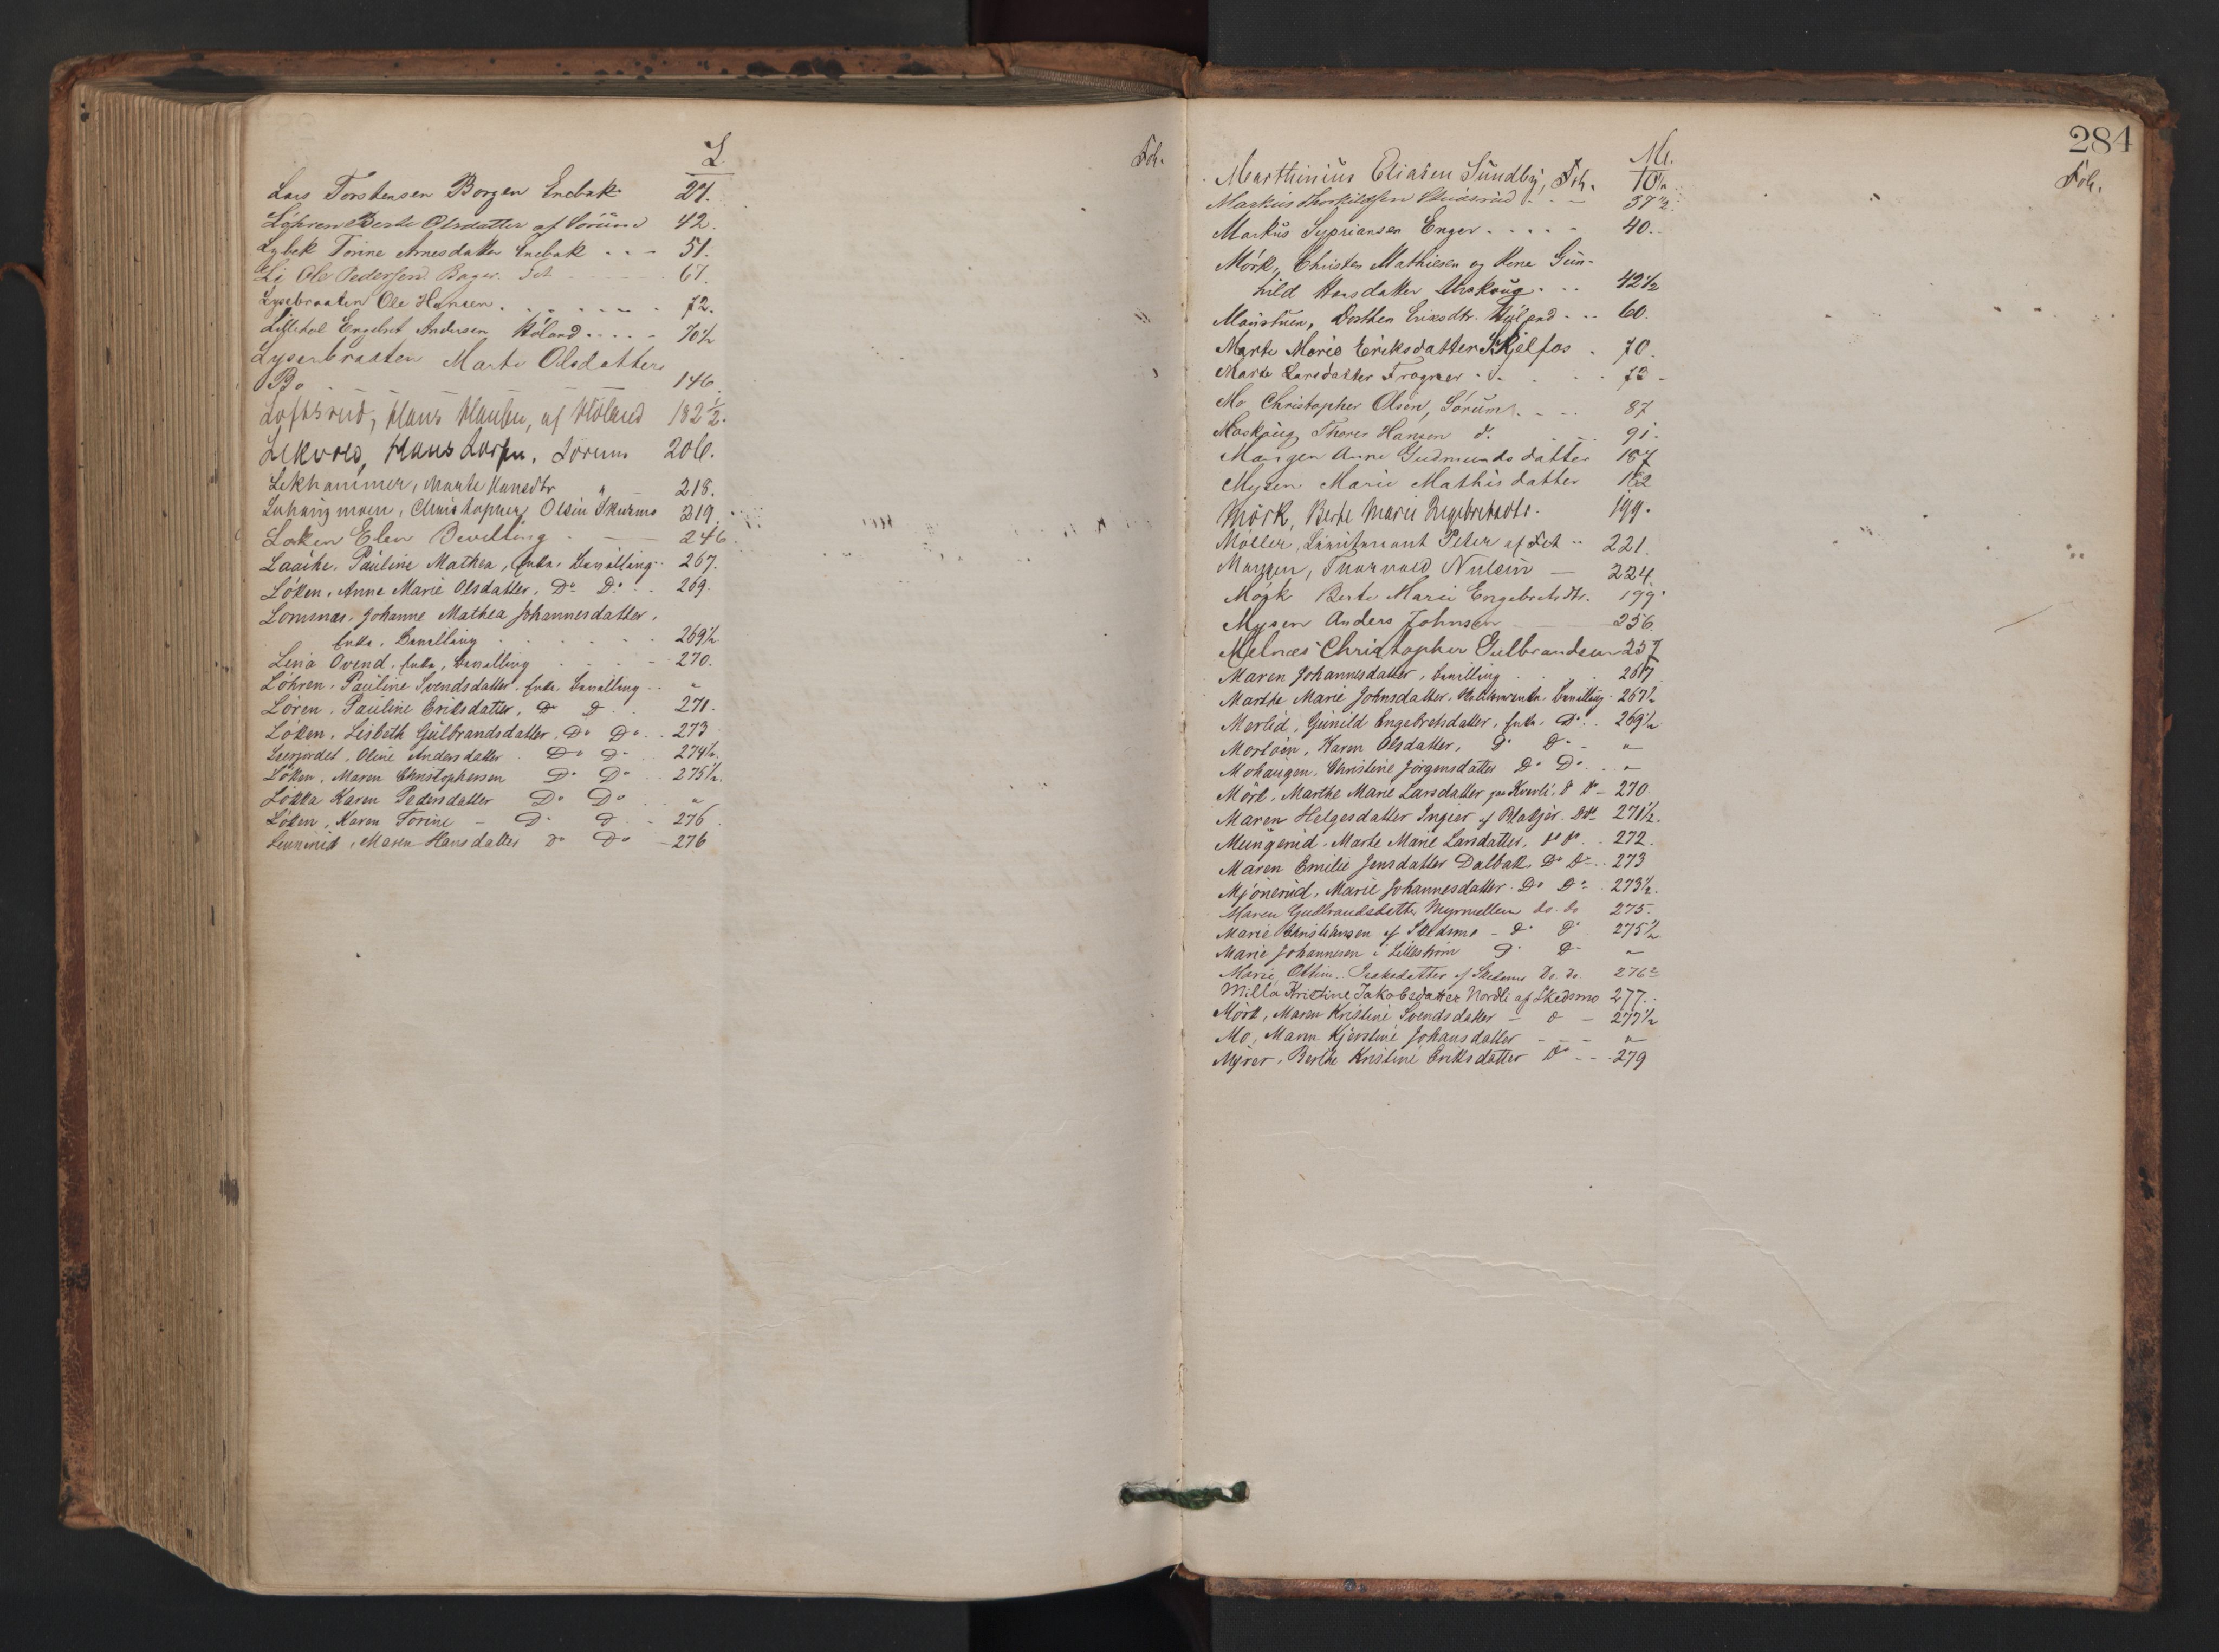 L
Foh.
Lars Torstensen Borgen Enebak 21.
Løhren Berte Olsdatter af Sørum 42.
Lybek Torine Arnesdatter Enebak . . - 51.
Li Ole Pedersen Fet 67.
Lysebraaten Ole Hansen . . . 72.
Lillehol Engebret Andersen Höland . . . 70½
Lysenbraaten Marte Olsdatter
Bo - - - - 146.
Loftsrud, Hans Hansen, af Höland 182½.
Lekvold, Hans Larsen, Sörum 206.
Lekhammer, Marte Hansdtr " 218.
Christopher Olsen 219.
Løken Elen Bevilling - 246.
Laache, Pauline Mathea, Enke, Bevilling 267.
Löken, Anne Marie Olsdatter, Do Do . . 269.
Lomnæs, Johanne Mathea Johannesdatter,
Enke, Bevilling . . . 269½
Lena Ovend, Enke, Bevilling . . . 270.
Löhren, Pauline Svendsdatter, Enke, Bevilling . . "
Lören, Pauline Eriksdatter, Do Do . . 271.
Löken, Lisbeth Gulbrandsdatter, Do Do . . 273
Oline Andersdatter Do Do 274½.
Löken, Maren Christophersen Do Do . . 275½.
Lökka Karen Pedersdatter Do Do . . "
Löken, Karen Torine - Do Do . - 276.
Maren Hansdatter Do Do - 276
284
M.
Foh.
Marthinius Eliasen Sundby, Fet. 10½
Markus Thorkildsen - - 37½.
Markus Sypriansen Enger . . . . 40.
Mörk, Christen Mathiesen og Kone Gun-
hild Hansdatter . . . 42½
Dorthea Eriksdtr. Höland . . . 60.
Marte Marie Eriksdatter Kjelfos . 70.
Marte Larsdatter Frogner . . . 73 -
Mo Christopher Olsen, Sørum . - . . 87
Maskoug Thorer Hansen d. . . . 91.
Mangen Anne Gudmundsdatter 187
Mysen Marie Mathisdatter 182
Mörk, Berte Marie Engebretsdtr. 199.
Møller, Lieutenant Peter af Fet . . 221.
Mangen, Thorvald Nilsen — 224
Mørk Berte Marie Engebretsdtr. 199.
Mysen Anders Johnsen — 256
Melnæs Christopher Gulbrandsen 257
Maren Johannesdatter, Bevilling . . . 267.
Marthe Marie Johnsdatter, Bevilling . 267½
Morlid, Gunild Engebretsdatter, Enke, Do . . 269½
Karen Olsdatter, Do Do - "
Mohaugen, Christine Jörgensdatter Do Do . . "
Mörk, Marthe Marie Larsdatter Do Do - 270
Maren Helgesdatter Ingier af Blakjer. DoDo 271½.
Marte Marie Larsdatter, Do Do . . 272.
Maren Emilie Jensdatter Dalbak Do Do . . 273
Mjönerud, Marie Johannesdatter . Do Do . 273½.
Maren Gudbrandsdatter do. do 275.
Marie Christiansen af Skedsmo - Do Do 275½
Marie Johannesen i Lilleström Do Do "
Marie Isaksdatter af Skedsmo Do. do. 276½
Milla Kristine Jakobsdatter Nordli af Skedsmo 277. .
Mörk, Maren Kristine Svendsdatter - Do - 277½
Mo, Maren Kjerstine Johansdatter - - - "
Myrer, Berthe Kristine Eriksdatter Do - - 279